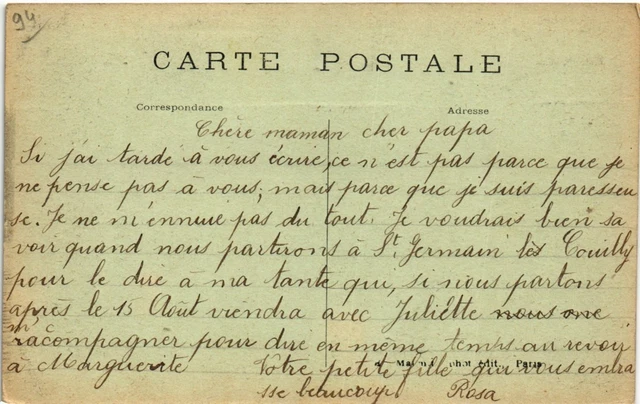 94
CARTE POSTALE
Correspondance
Adresse
Chère maman cher papa
Si j'ai tardé à vous écrire, ce n'est pas parce que je
ne pense pas à vous, mais parce que je suis paresseu
se. Je ne m'ennuie pas du tout. Je voudrais bien sa
voir quand nous partirons à St Germain lès Couilly
pour le dire à ma tante qui, si nous partons
après le 15 Août viendra avec Juliette nous
m'racompagner pour dire en même temps au revoir
à Marguerite
phot. Édit., Paris
Votre petite fille qui vous embra
sse beaucoup Rosa